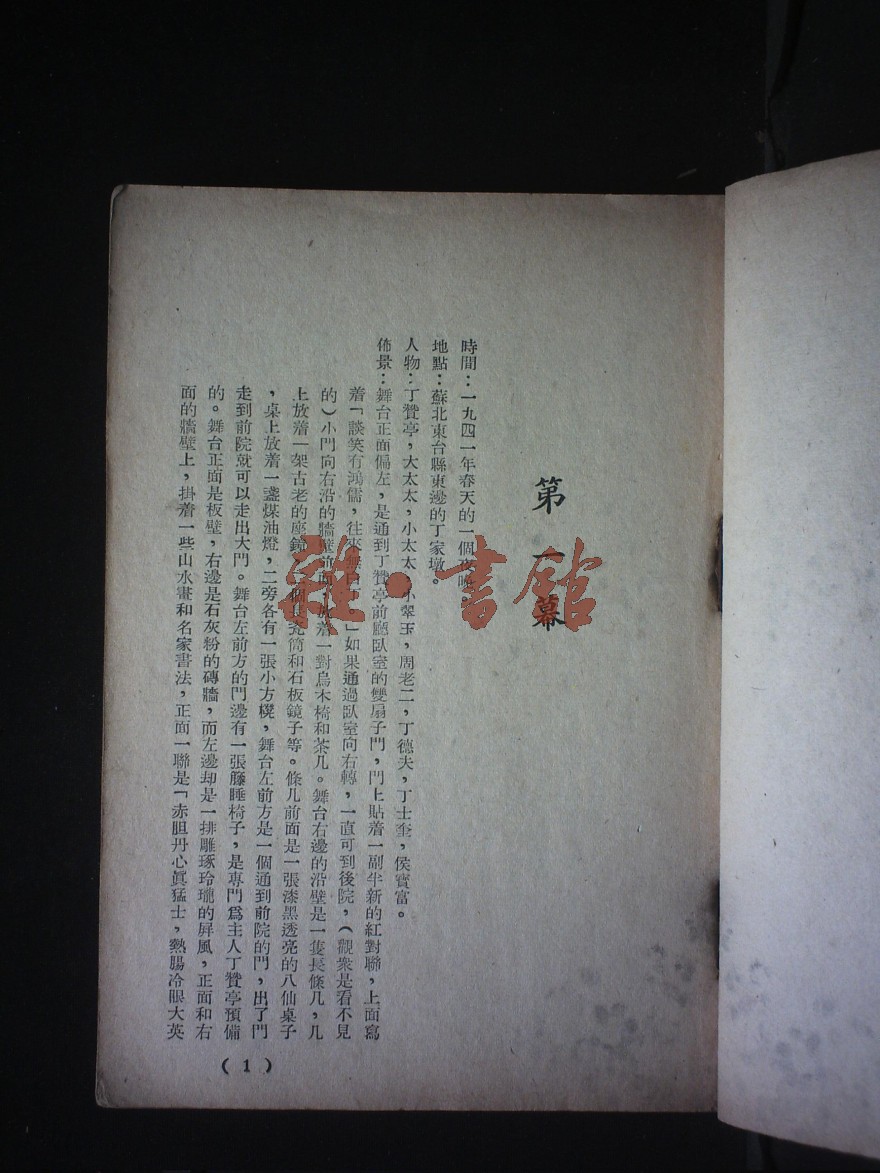 第一幕
時間：一九四一年春天的一個夜晚。
地點：蘇北東台縣東邊的丁家墩。
人物：丁贊亭，大太太，小太太，小翠玉，周老二，丁德夫，丁士奎，侯寶富。
佈景：舞台正面偏左，是通到丁贊亭前廳臥室的雙扇子門，門上貼着一副半新的紅對聯，上面寫
着「談笑有鴻儒，往來無白丁。」如果通過臥室向右轉，一直可到後院，（觀衆是看不見
的）小門向右沿的牆壁前面，放着一對烏木椅和茶几。舞台右邊的沿壁是一隻長條几，几
上放着一架古老的座鐘，個長瓷筒和石板鏡子等。條几前面是一張漆黑透亮的八仙桌子
，桌上放着一盞煤油燈，二旁各有一張小方櫈，舞台左前方是一個通到前院的門，出了門
走到前院就可以走出大門。舞台左前方的門邊有一張籐睡椅子，是專門爲主人丁贊亭預備
的。舞台正面是板壁，右邊是石灰粉的磚牆，而左邊却是一排雕琢玲瓏的屏風，正面和右
面的牆壁上，掛着一些山水畫和名家書法，正面一聯是「赤胆丹心眞猛士，熱腸冷眼大英
（1）
雜·書館